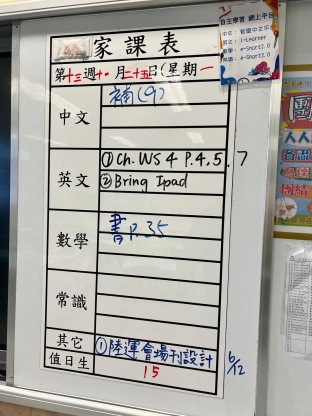 家課表
第十三週十一月二十五日(星期一
中文 補(九)
英文 ① Ch. WS 4 P.4.5.7
② Bring Ipad
數學 書P.35
常識
其它 ① 陸運會場刊設計 6/12
值日生 15
自主學習 網上平台
中文:
英文: i-Learner
數學: e-Smart2.0
常識: e-Smart2.0
團
人人
各盡
團結